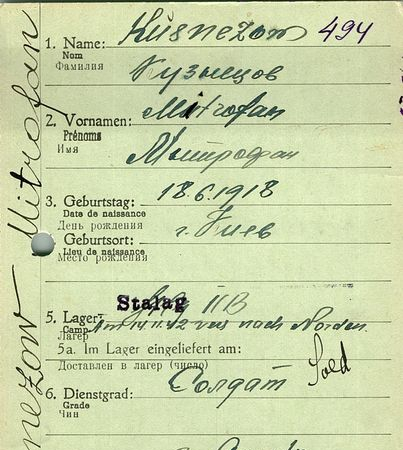 1. Name: Kusnezow 494
Nom
Фамилия Кузнецов
2. Vornamen: Mitrofan
Prénoms
Имя Митрофан
3. Geburtstag: 18.6.1918
Date de naissance
День рождения
Geburtsort: г. Киев
Lieu de naissance
место рождения
Stalag IIB
5. Lager
Camp Am 14.11.42 vers nach Norden.
Лагер
5a. Im Lager eingeliefert am:
Доставлен в лагер (число)
6. Dienstgrad: Солдат Sold
Grade
Чин
nezow Mitrofan